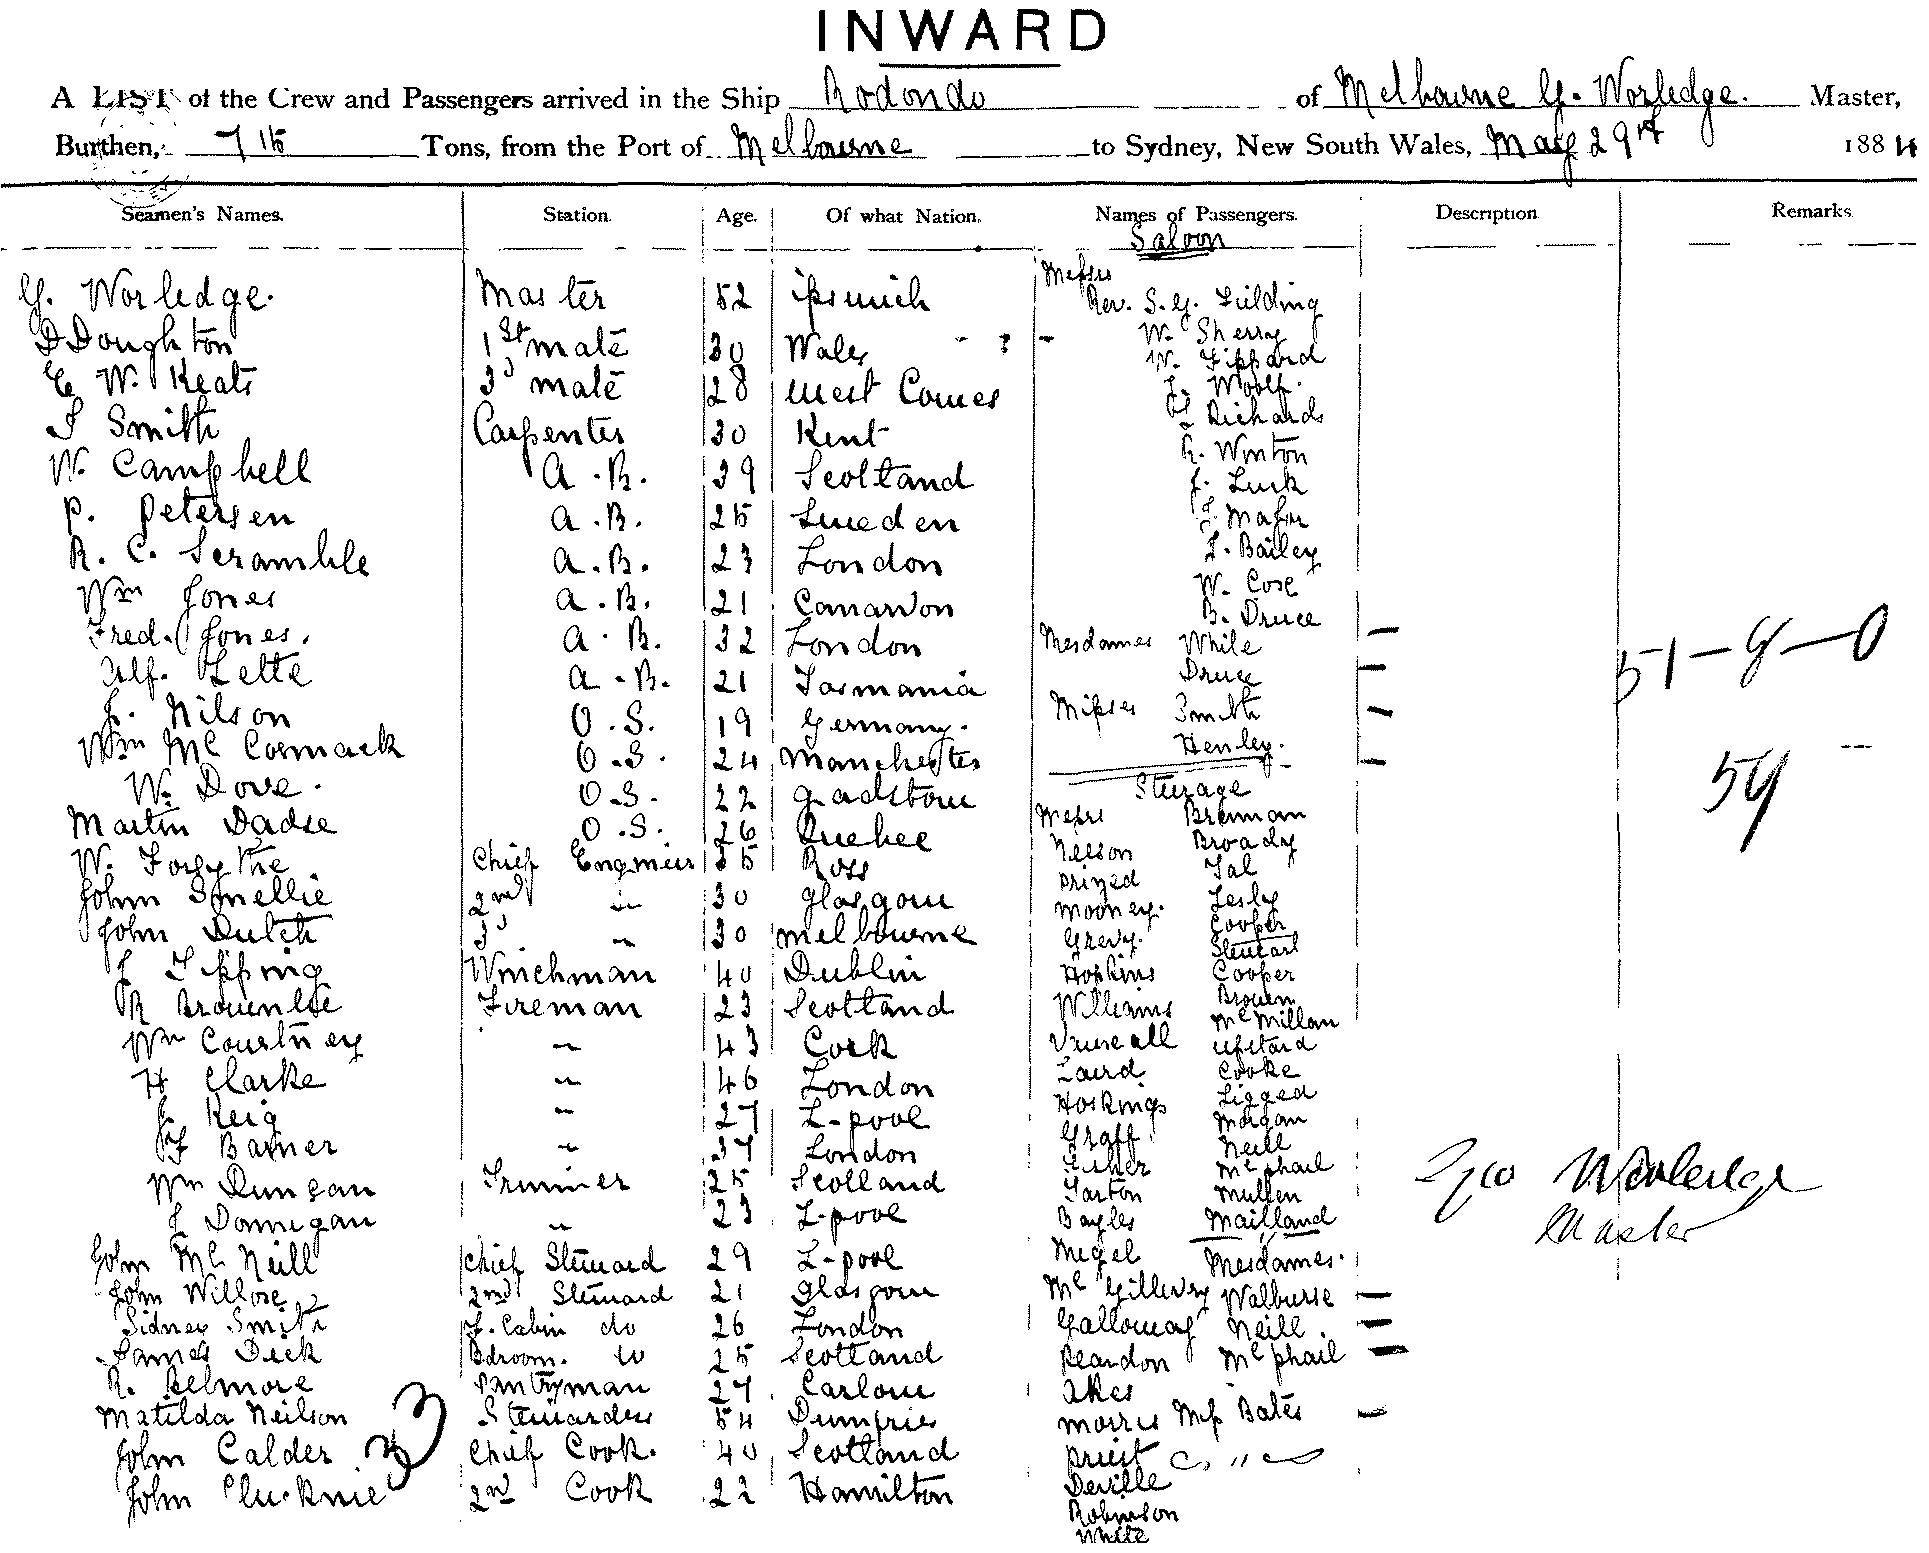 INWARD
A LIST of the Crew and Passengers arrived in the Ship Rodondo of Melbourne G. Worledge. Master,
Burthen, 715 Tons, from the Port of Melbourne to Sydney, New South Wales, May 29th 1884
Seamen's Names. Station. Age. Of what Nation. Names of Passengers. Description Remarks
Saloon
Messrs
G. Worledge. Master 52 ipswich Rev. S. G. Fielding
D Doughton 1st mate 30 Wales W. Sherry
W. Fippard
E W. Keats 3d mate 28 West Cowes Woolf.
Smith Carpenter 30 Kent Richards
W. Campbell A.B. 39 Scotland R. Winton
Lusk
P. Petersen A.B. 25 Sweden Major
R. C. Scramble A.B. 23 London Bailey
W. Cose
Wm Jones A.B. 21 Canarvon B. Druce
Fred. Jones. A.B. 32 London Mesdames White
51-9-0
Alf. Lette A.B. 21 Tasmania Druce
Nilson O.S. 19 Germany. Misses Smith
Wm Mc Cormack O.S. 24 Manchester Henley.
59
W. Dove. O.S. 22 Gladstone Steerage
Martin Dadse O.S. 26 Quebec Messrs Brennan
W. Forsythe Chief Engineer 35 Ross Neeson Broady
Tal
John Smellie 2nd " 30 Glasgow Mooney. Lesly
Cooper
John Dutch 3d " 30 Melbourne Stewart
Tipping Winchman 40 Dublin Hopkins Cooper
R Brownlie Fireman 23 Scotland Williams Brown
Mc Millan
Wm Courtney " 43 Cork
H Clarke " 46 London Laird Cooke
Keig " 27 L-pool Hoskings Ligged
Morgan
Barner " 37 London Graff Neill
Wm Duncan Trimmer 25 Scotland Fisher Mc phail
Tarton Mullen
Donnigan " 23 L-pool Bayles Maitland
John Mc Neill Chief Steward 29 L-pool Megel Mesdames.
John Willose 2nd Steward 21 Glasgow Mc Gillevry Walburse
Sidney Smith F. Cabin do 26 London Galloway Neill.
James Dick Bdroom. do 25 Scotland Reardon Mc phail
R. Belmore Pantryman 27 Carlow Akes
Matilda Neilson Stewardess 54 Dumfries Morris Miss Bates
John Calder Chief Cook. 40 Scotland Priest
33
John 2nd Cook 22 Hamilton Deville
Robinson
White
Geo Worledge
Master